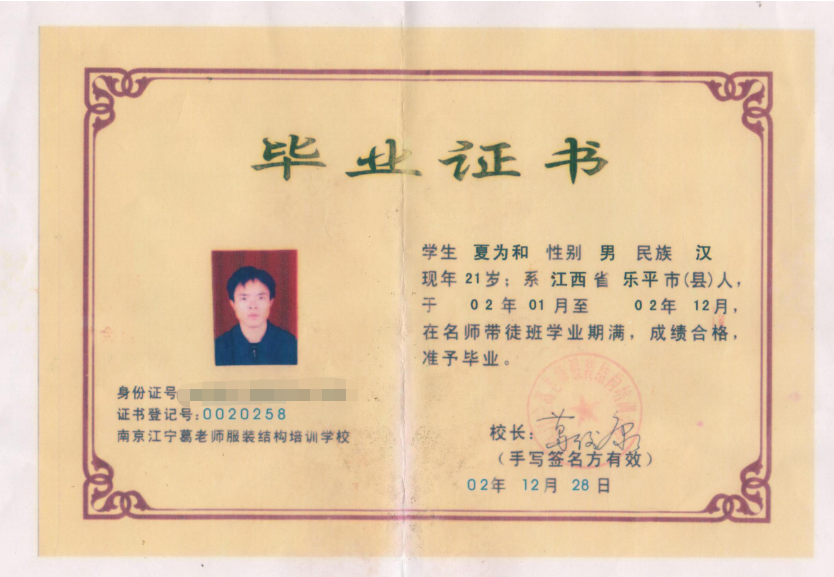 毕业证书
学生 夏为和 性别 男 民族 汉
现年21岁；系 江西省 乐平市(县)人，
于 02年01月至 02年12月，
在名师带徒班学业期满，成绩合格，
准予毕业。
身份证号
证书登记号:0020258
南京江宁葛老师服装结构培训学校
校长：
（手写签名方有效）
02年 12月 28日